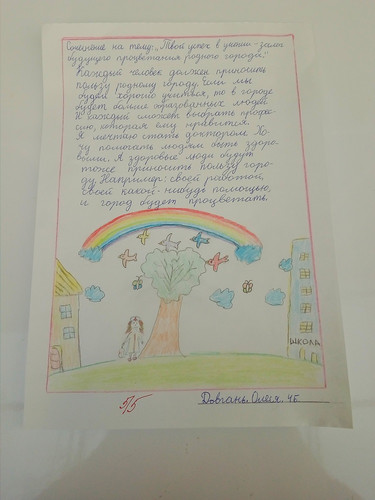 Сочинение на тему: „Твой успех в учёбе – залог
будущего процветания родного города."
Каждый человек должен приносить
пользу родному городу. Если мы
будем хорошо учиться, то в городе
будет больше образованных людей
И каждый сможет выбрать профес-
сию, которая ему нравится.
Я мечтаю стать доктором. Хо-
чу помогать людям быть здоро-
выми. А здоровые люди будут
тоже приносить пользу горо-
ду. Например: своей работой,
своей какой-нибудь помощью,
и город будет процветать.
ШКОЛА
5/5
Довгань Олеся, 4Б